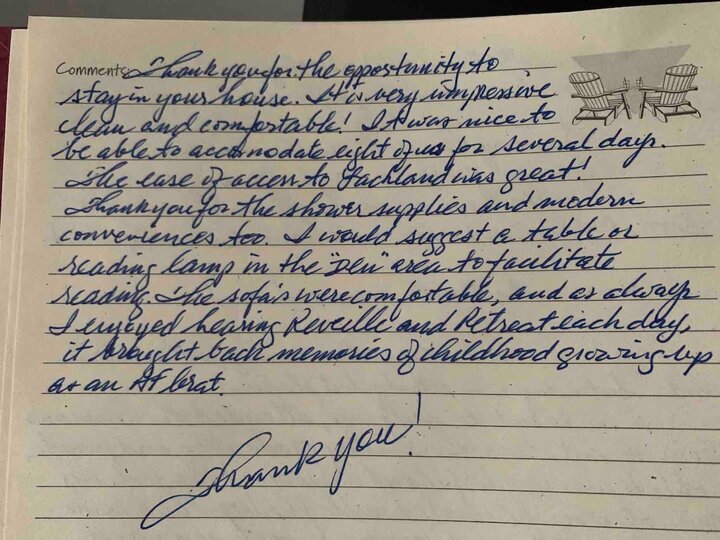 Comments: Thank you for the opportunity to
stay in your house. It is very impressive
clean and comfortable! It was nice to
be able to accomodate eight of us for several days.
The ease of access to Lackland was great!
Thank you for the shower supplies and modern
conveniences too. I would suggest a table or
reading lamp in the "Den" area to facilitate
reading. The sofa's were comfortable, and as always
I enjoyed hearing Reveille and Retreat each day,
it brought back memories of childhood growing up
as an AF brat.
Thank you!